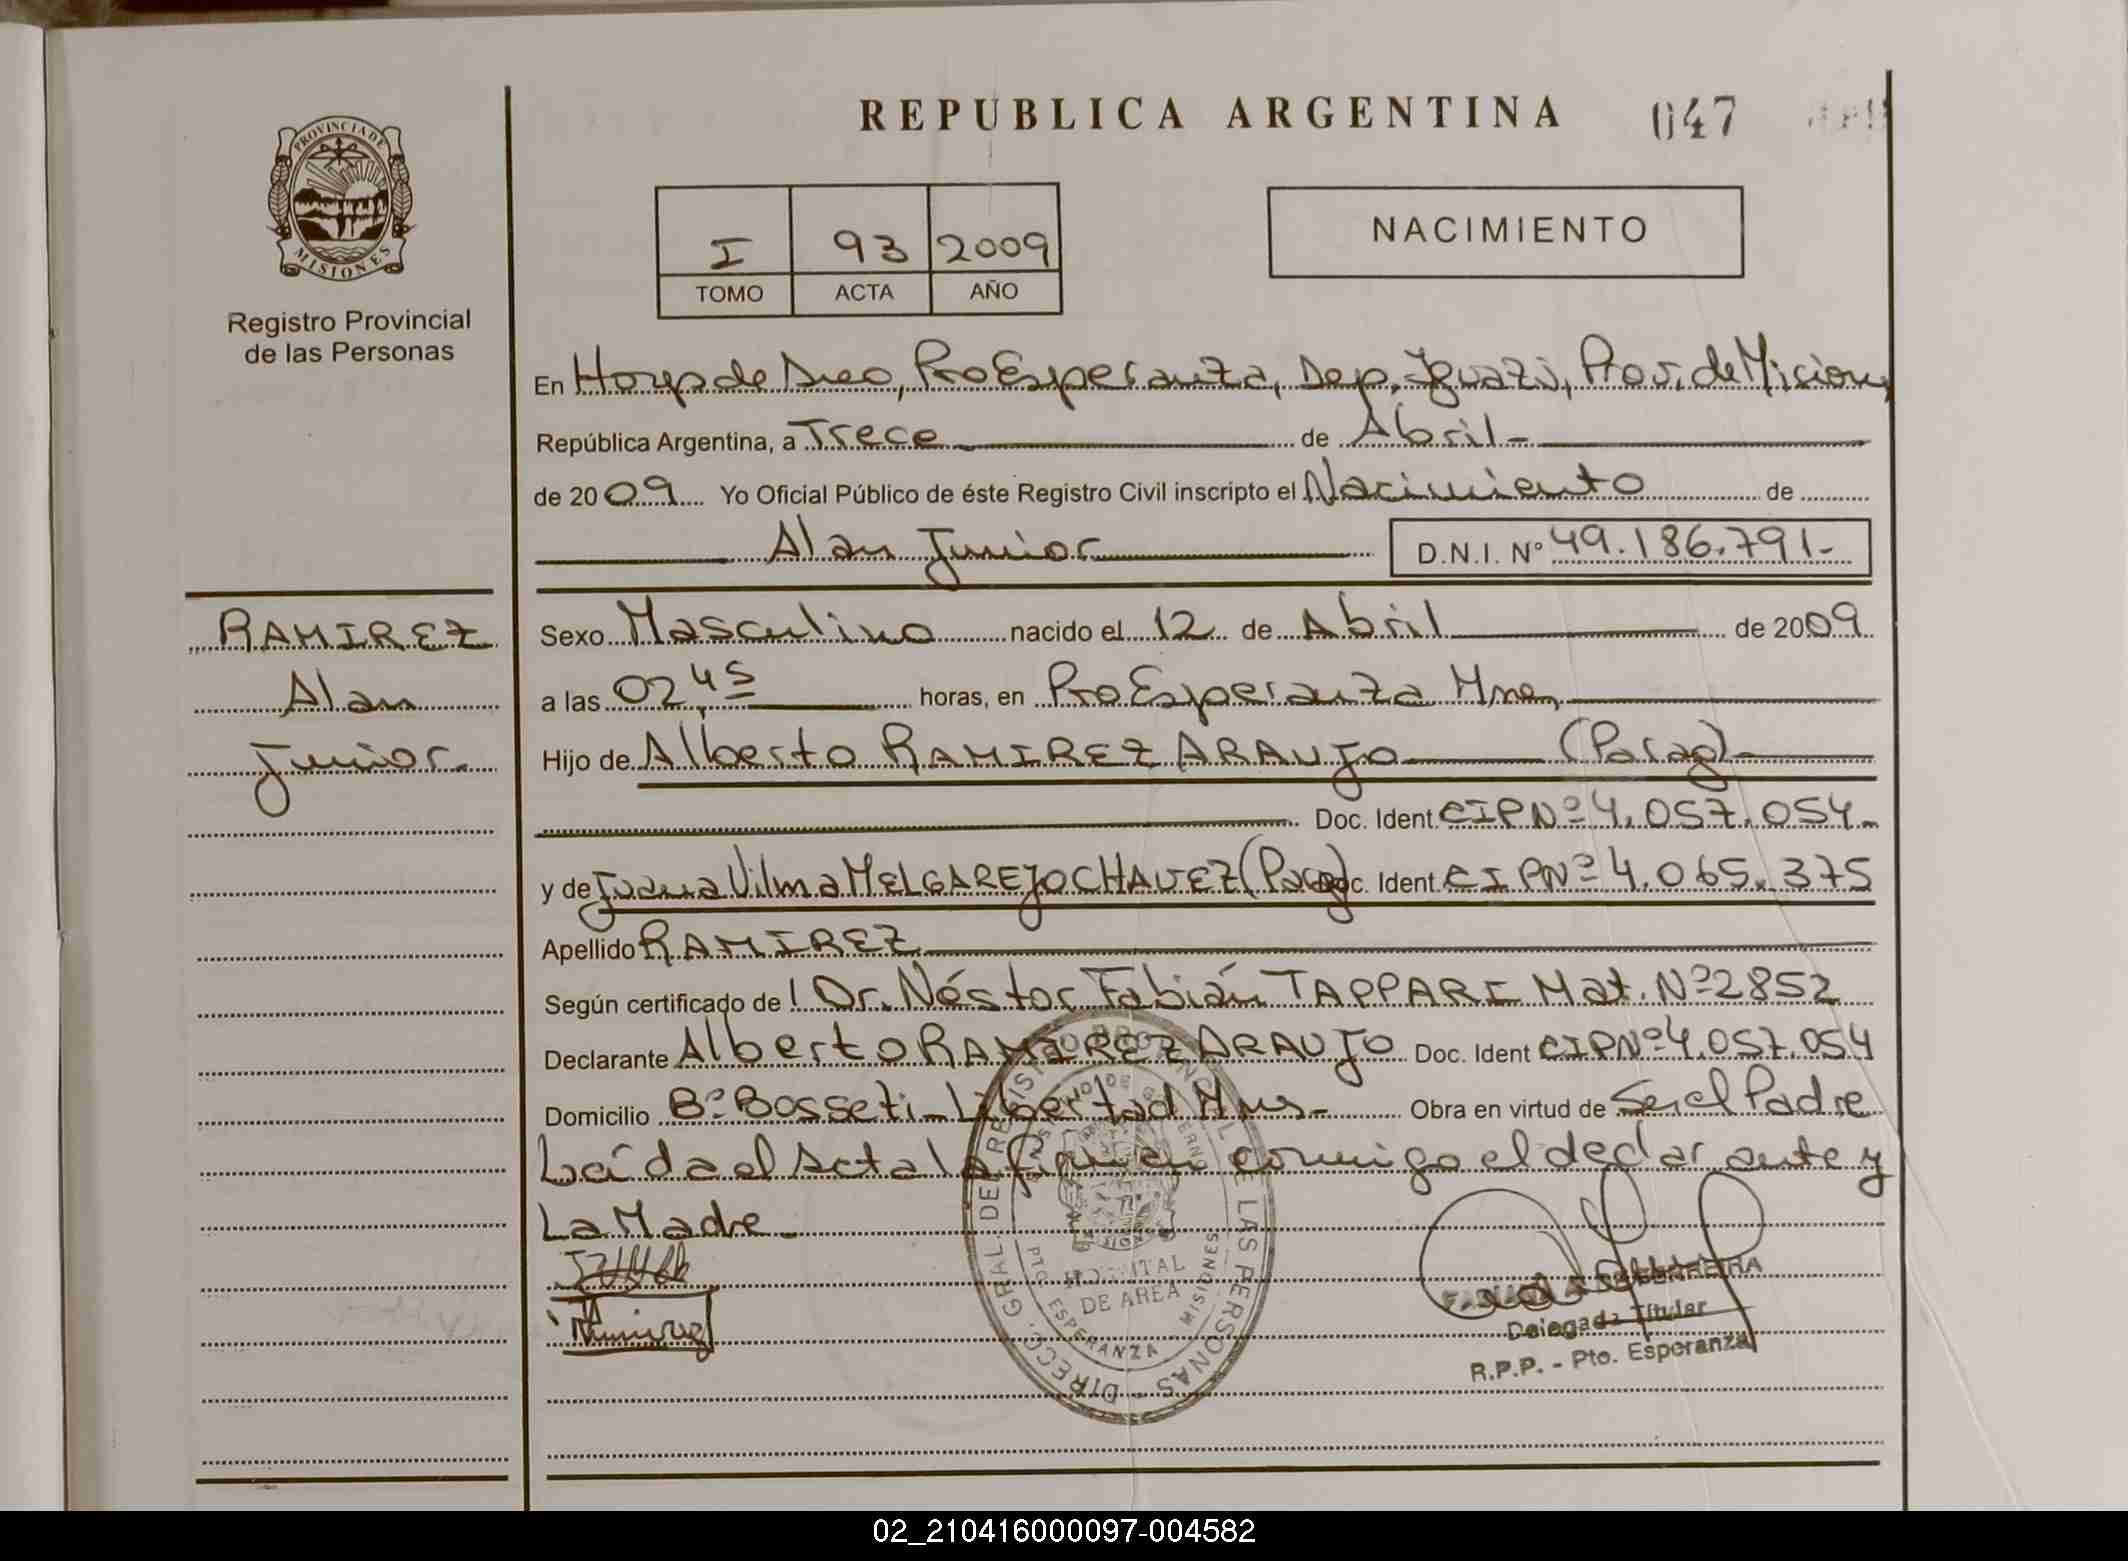 REPUBLICA ARGENTINA 047
PROVINCIA DE
MISIONES
Registro Provincial
de las Personas
I 93 2009
TOMO ACTA AÑO
NACIMIENTO
En Hosp de Area, Pto Esperanza, Dep. Iguazú, Prov. de Misiones
República Argentina, a Trece de Abril-
de 2009 Yo Oficial Público de éste Registro Civil inscripto el Nacimiento de
Alan Junior D.N.I. Nº 49.186.791-
RAMIREZ
Alan
Junior.
Sexo Masculino nacido el 12 de Abril de 2009
a las 02,45 horas, en Pto Esperanza Mnes
Hijo de Alberto RAMIREZ ARAUJO (Parag)-
Doc. Ident CIPNº 4.057.054-
y de Juana Vilma MELGAREJO CHAVEZ (Parag) Doc. Ident CIPNº 4.065.375
Apellido RAMIREZ
Según certificado de l Dr. Néstor Fabián TAPPARI Mat. Nº 2852
Declarante Alberto RAMIREZ ARAUJO Doc. Ident CIPNº 4.057.054
Domicilio Bº Bosseti-Libertad Mns- Obra en virtud de Ser el Padre
Leída el Acta la firman conmigo el declarante y
La Madre-
Ramirez
DIRECC. GRAL. DEL REGISTRO PROVINCIAL DE LAS PERSONAS
HOSPITAL
DE AREA
PTO ESPERANZA MISIONES
Delegada Titular
R.P.P. - Pto. Esperanza
02_210416000097-004582